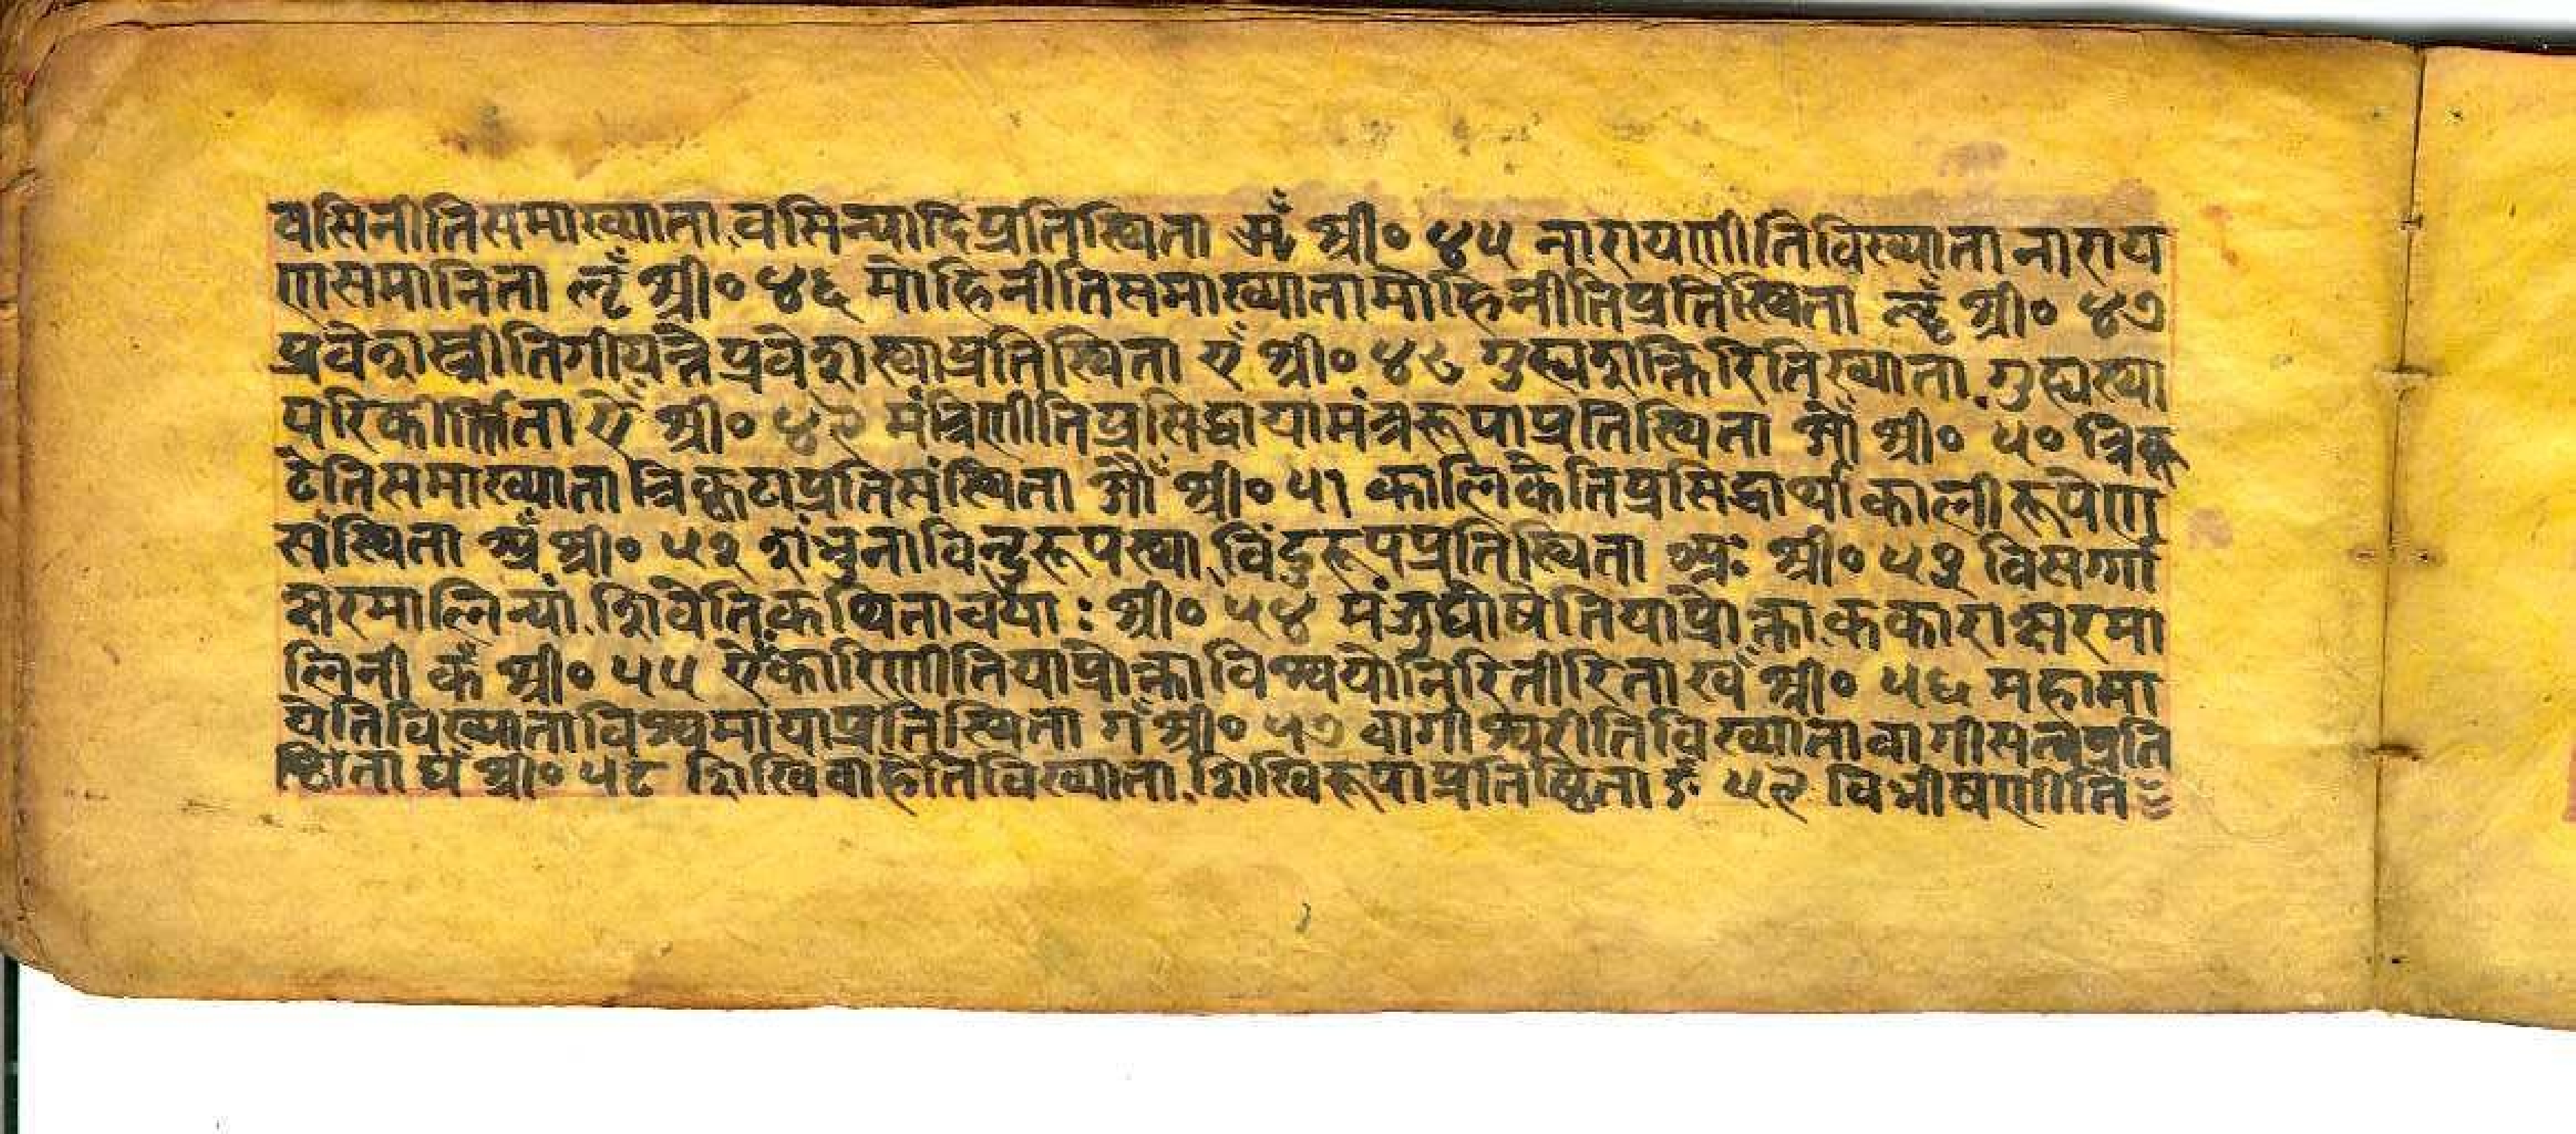 वसिनीतिसमाख्याता वसिन्यादिप्रतिस्थिता ॠँ श्री० ४५ नारायणीतिविख्याता नाराय
णसमानिता ऌँ श्री० ४६ मोहिनीतिसमाख्यातामोहिनीतिप्रतिस्थिता ॡँ श्री० ४७
प्रवेशस्त्रीतिगीयन्नैप्रवेशस्थाप्रतिस्थिता एँ श्री० ४८ गुह्यशक्तिरितिख्याता गुह्यस्था
परिकीर्त्तिता ऐँ श्री० ४९ मंत्रिणीतिप्रसिद्धायामंत्ररूपाप्रतिस्थिता ओँ श्री० ५० त्रिकू
टेतिसमाख्याता त्रिकूटाप्रतिसंस्थिता औँ श्री० ५१ कालिकेतिप्रसिद्धार्थाकालीरूपेण
संस्थिता अँ श्री० ५२ शंभुनाविन्दुरूपस्था विंदुरूपप्रतिस्थिता अः श्री० ५३ विसर्गा
क्षरमालिन्यां शिवेतिकथिताचया : श्री० ५४ मंजुघोषेतियाप्रोक्ता ककाराक्षरमा
लिनी कँ श्री० ५५ ऐंकारिणीतियाप्रोक्ताविश्वयोनिरितीरिता खँ श्री० ५६ महामा
येतिविख्याताविश्वमायाप्रतिस्थिता गँ श्री० ५७ वागीश्वरीतिविख्यातावागीसत्वेप्रति
ष्ठिता घँ श्री० ५८ शिखिवाहेतिविख्याता शिखिरूपाप्रतिष्ठिता ङँ ५९ विभीषणीति